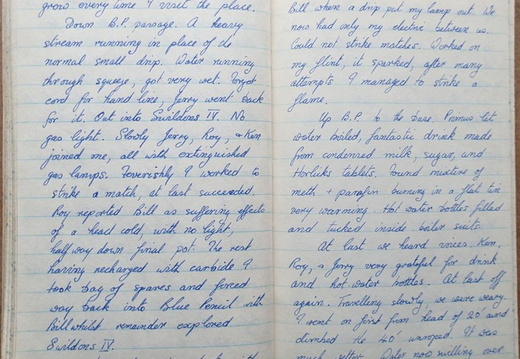 grows every time I visit the place.
Down B.P. passage. A heavy
stream running in place of its
normal small drip. Water running
through squeeze, got very wet. Forgot
cord for hand line, Jerry went back
for it. Out into Swildons IV. No
gas light. Slowly Jerry, Roy, & Ken
joined me, all with extinguished
gas lamps. Feverishly I worked to
strike a match, at last succeeded.
Roy reported Bill as suffering effects
of a head cold, with no light,
half way down final pot. The rest
having recharged with carbide I
took bag of spares and forced
way back into Blue Pencil with
Bill whilst remainder explored
Swildons IV.
Bill where a drip put my lamp out. We
now had only my electric between us.
Could not strike matches. Worked on
my flint, it sparked, after many
attempts I managed to strike a
flame.
Up B.P. to the base. Primus lit
water boiled, fantastic drink made
from condensed milk, sugar, and
Horlicks tablets. Found mixture of
meth + parafin burning in a flat tin
very warming. Hot water bottles filled
and tucked inside boiler suits.
At last we heard voices. Ken,
Roy, & Jerry very grateful for drink
and hot water bottles. At last off
again. Travelling slowly, we were weary.
I went on first from head of 20 and
climbed the 40 unroped. It was
much wetter. Water now swilling over